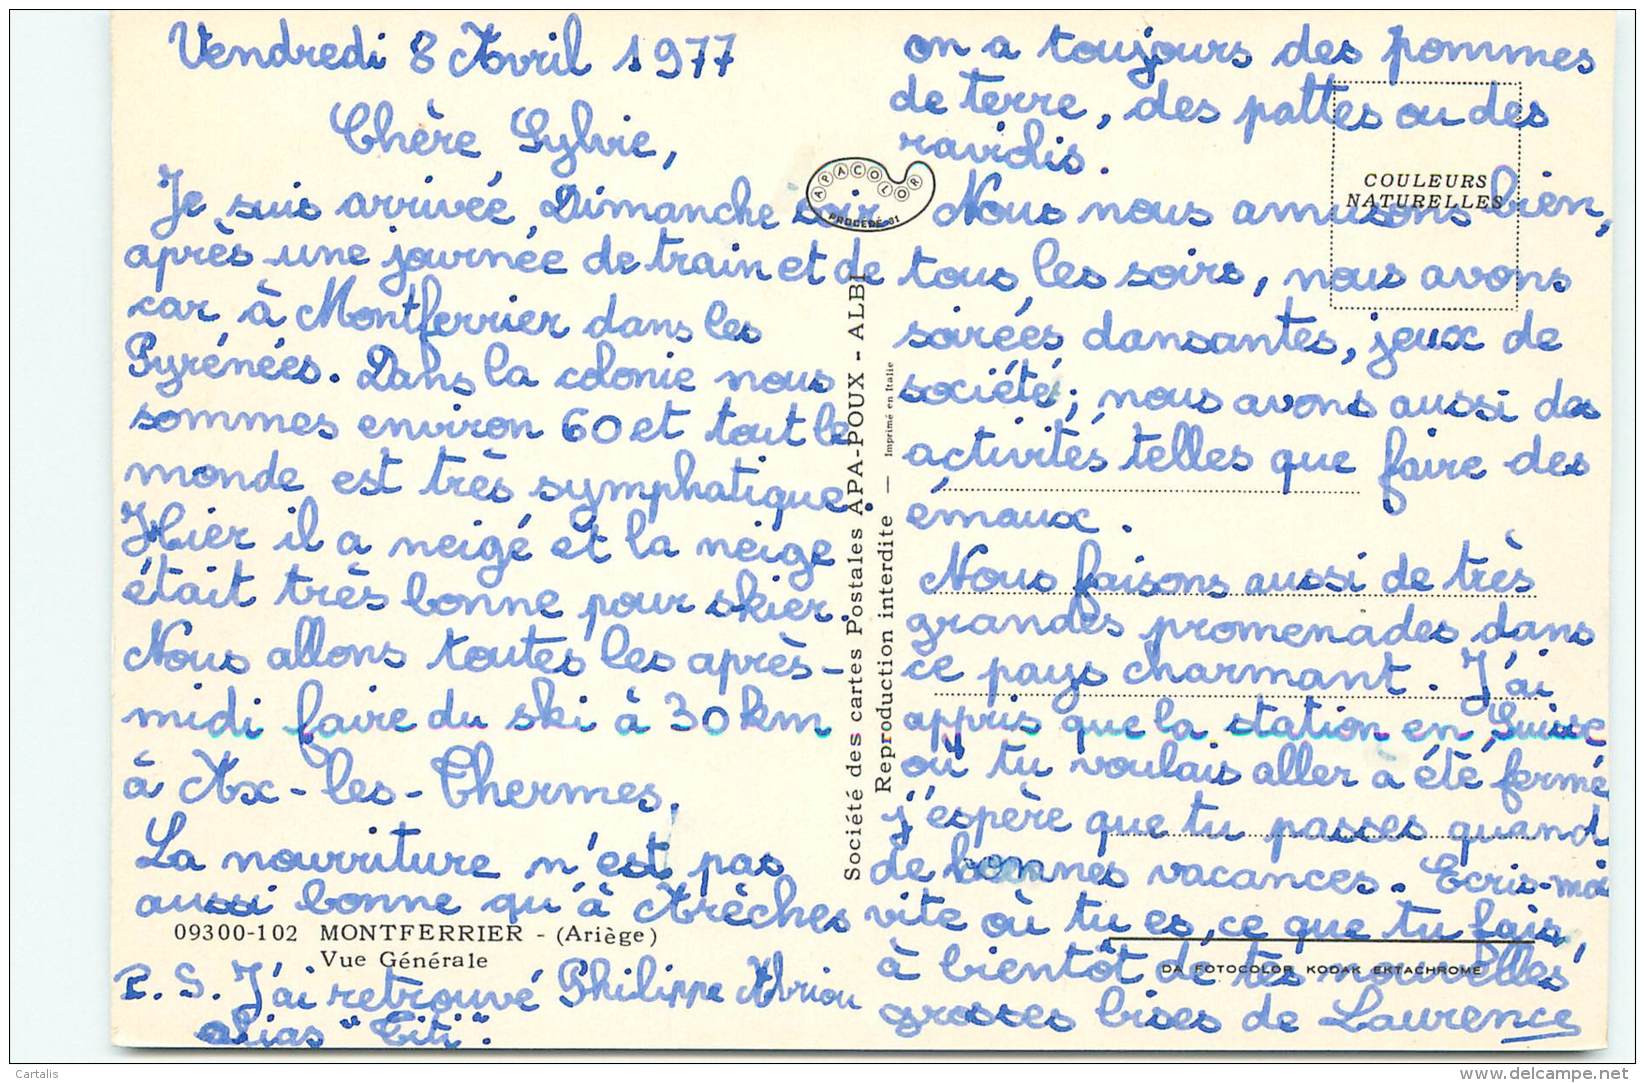 Vendredi 8 Avril 1977
Chère Sylvie,
Je suis arrivée Dimanche soir
après une journée de train et de
car à Montferrier dans les
Pyrénées. Dans la colonie nous
sommes environ 60 et tout le
monde est très symphatique.
Hier il a neigé et la neige
était très bonne pour skier.
Nous allons toutes les après-
midi faire du ski à 30 km
à Ax-les-Thermes.
La nourriture n'est pas
aussi bonne qu'à Arèches
on a toujours des pommes
de terre, des pattes ou des
raviolis.
Nous nous amusons bien,
tous les soirs, nous avons
soirées dansantes, jeux de
société; nous avons aussi des
activités telles que faire des
émaux.
Nous faisons aussi de très
grandes promenades dans
ce pays charmant. J'ai
appris que la station en Suisse
où tu voulais aller a été fermé
j'espère que tu passes quand
de bonnes vacances. Ecris-moi
vite où tu es, ce que tu fais,
à bientôt de tes nouvelles
grosses bises de Laurence
P.S. J'ai retrouvé Philippe Abriou
alias "Titi".
09300-102 MONTFERRIER - (Ariège)
Vue Générale
APACOLOR
PROCÉDÉ 01
Société des cartes Postales APA-POUX - ALBI
Reproduction interdite — Imprimé en Italie
COULEURS
NATURELLES
DA FOTOCOLOR KODAK EKTACHROME
Cartalis
www.delcampe.net